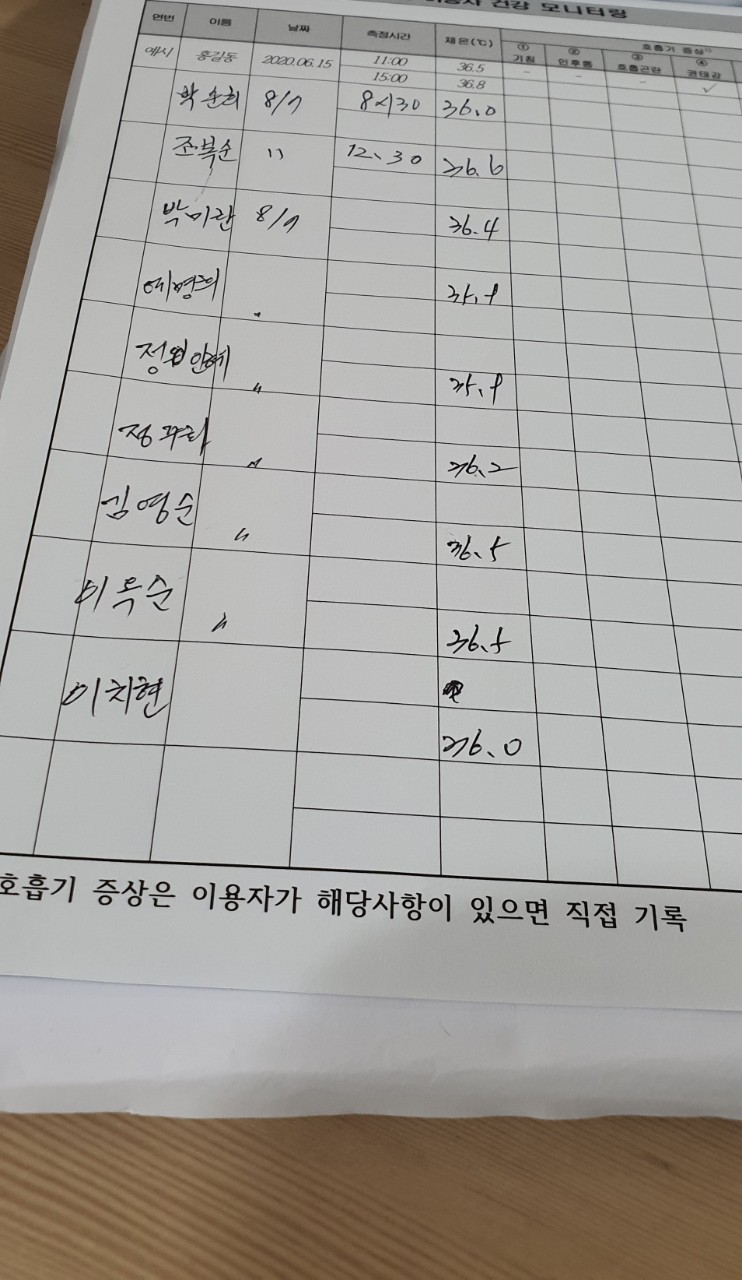 건강 모니터링
연번 이름 날짜 측정시간 체온(℃) 호흡기 증상
① 기침 ② 인후통 ③ 호흡곤란 ④ 권태감
예시 홍길동 2020.06.15 11:00 36.5 - - - ✓
15:00 36.8
박순희 8/7 8시30 36.0
조복순 〃 12、30 36.6
박미란 8/7 36.4
36.2
김영순 〃 36.5
이옥순 〃 36.5
이치현
36.0
호흡기 증상은 이용자가 해당사항이 있으면 직접 기록